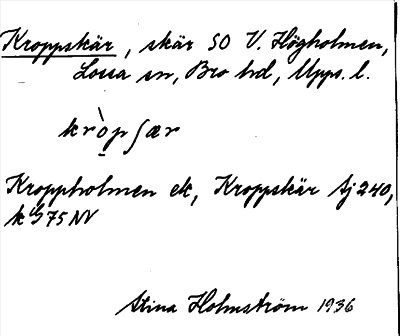 Kroppskär, skär SO V. Högholmen,
Lossa sn, Bro hd, Upps. l.
kròpʃær
Kroppholmen ek, Kroppskär Sj 240,
75 NV
Stina Holmström 1936